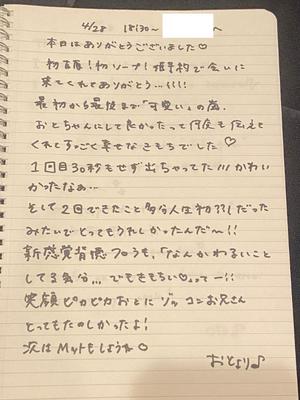 4/28 18:30〜 〜
本日はありがとうございました♡
初吉原!初ソープ!指予約で会いに
来てくれてありがとう...!!!!
最初から最後まで「可愛い」の嵐、
おとちゃんにして良かったって何度も伝えて
くれてすっごく幸せなきもちでした♡
1回目30秒もせず出ちゃってた///かわい
かったなぁ...
そして2回できたこと多分人生初??!だった
みたいでとってもうれしかったんだ〜!!
新感覚背徳フロうも、「なんかわるいこと
してる気分...でもきもちい♡」って ー!!
笑顔ピカピカおとにゾッコンお兄さん
とってもたのしかったよ!
次はMットもしようね♡
おとより♪